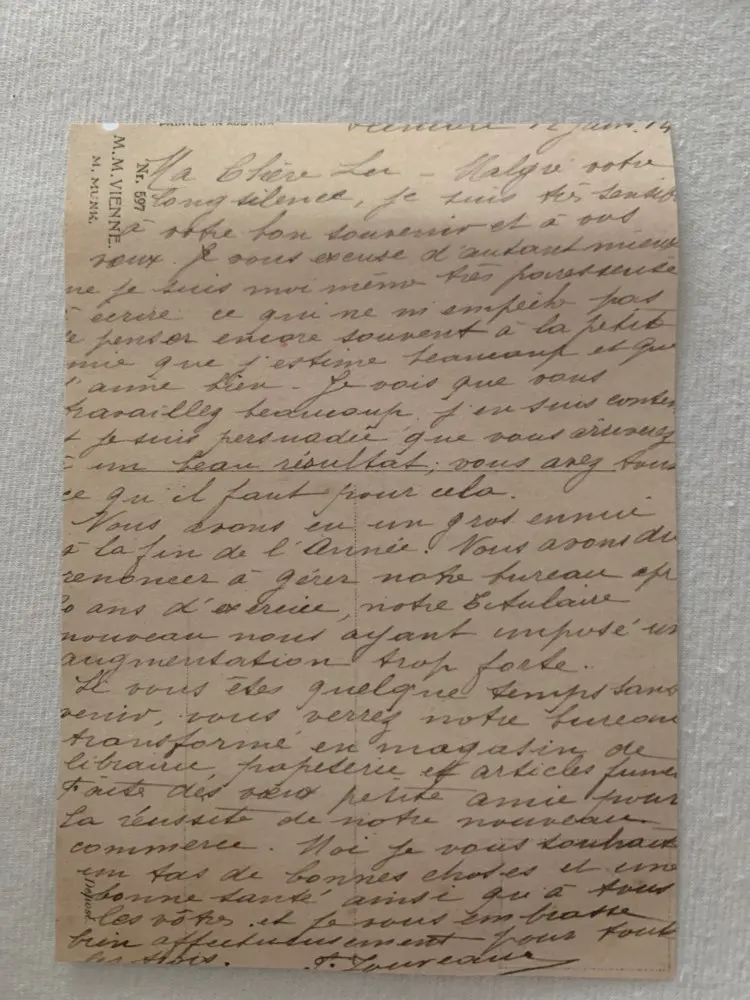 PRINTED IN AUSTRIA
12 Janv. 14
Nr. 597
M. M. VIENNE.
M. MUNK.
Ma Chère Lu – Malgré votre
long silence, je suis très sensib
à votre bon souvenir et à vos
vœux. Je vous excuse d'autant mieux
ue je suis moi même très paresseuse
à écrire ce qui ne m'empêche pas
e penser encore souvent à la petite
mie que j'estime beaucoup et que
j'aime bien – Je vois que vous
travaillez beaucoup, j'en suis conten
t je suis persuadée que vous arriverez
à un beau résultat; vous avez tout
ce qu'il faut pour cela.
Nous avons eu un gros ennui
à la fin de l'Année. Nous avons dû
renoncer à gérer notre bureau apr
20 ans d'exercice, notre Titulaire
nouveau nous ayant imposé un
augmentation trop forte.
Si vous êtes quelque temps sans
venir, vous verrez notre bureau
transformé en magasin de
librairie papeterie et articles fumeu
Faite des vœux petite amie pour
la réussite de notre nouveau
commerce. Moi je vous souhaite
un tas de bonnes choses et une
bonne santé ainsi qu'à tous
les vôtres et je vous embrasse
bien affectueusement pour tout
les trois.
Déposé